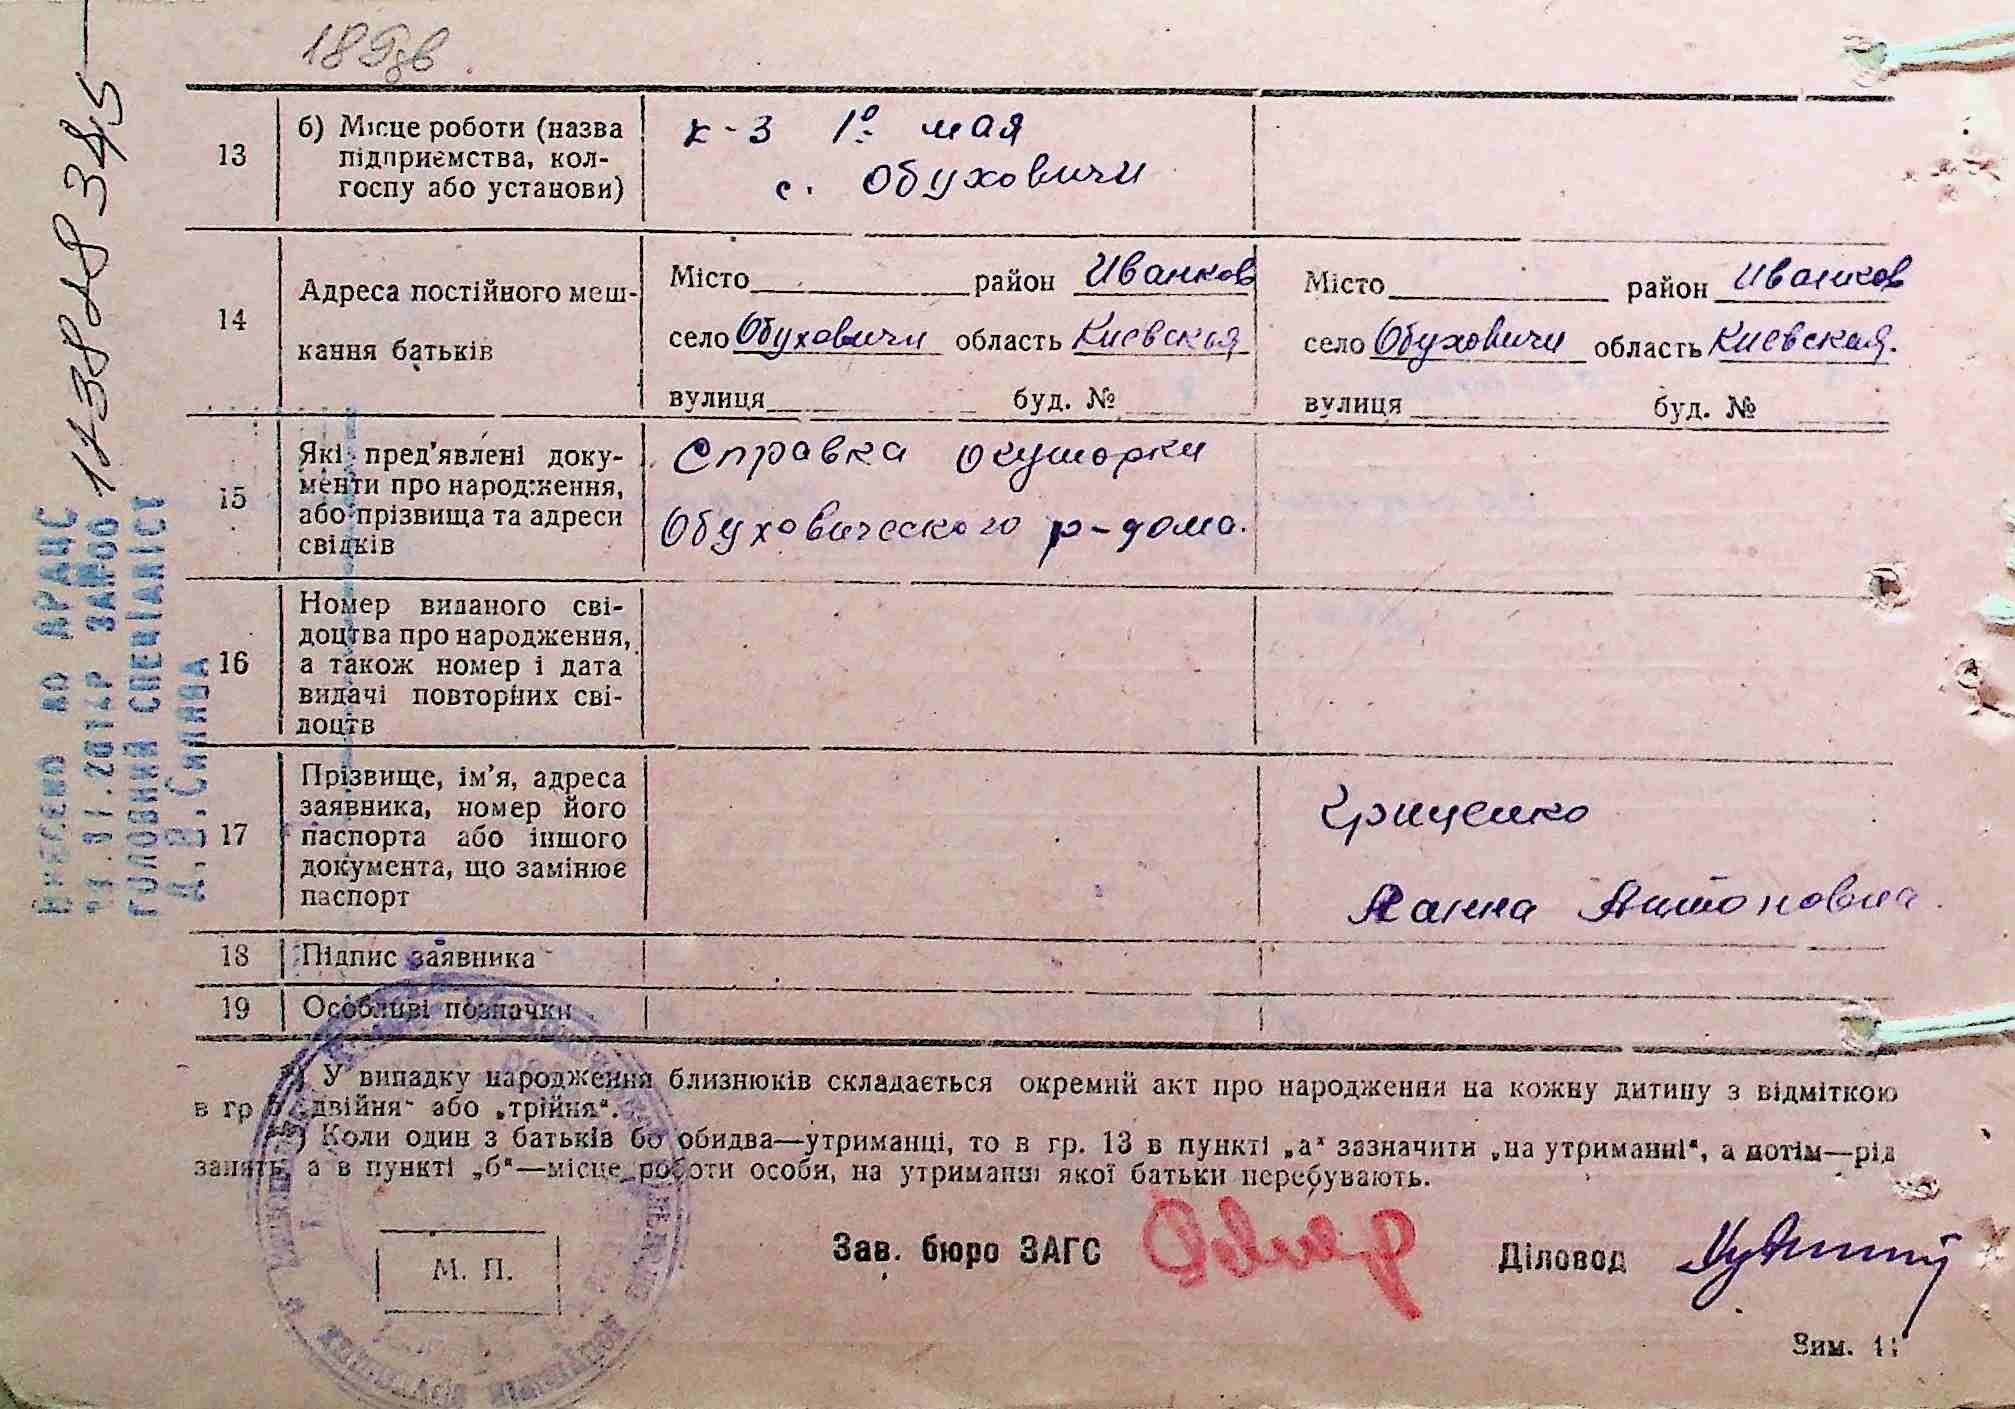 189зв
13
б) Місце роботи (назва
підприємства, кол-
госпу або установи)
к-з 1º мая
с. Обуховичи
14
Адреса постійного меш-
кання батьків
Місто район Иванков
село Обуховичи область Киевская
вулиця буд. №
Місто район Иванков
село Обуховичи область Киевская.
вулиця буд. №
15
Які пред'явлені доку-
менти про народження,
або прізвища та адреси
свідків
Справка окушорки
Обуховического р-дома.
16
Номер виданого сві-
доцтва про народження,
а також номер і дата
видачі повторних сві-
доцтв
17
Прізвище, ім'я, адреса
заявника, номер його
паспорта або іншого
документа, що замінює
паспорт
Грищенко
Ханна Антоновна.
18
Підпис заявника
19
Особливі позначки
У випадку народження близнюків складається окремий акт про народження на кожну дитину з відміткою
в гр „двійня“ або „трійня“.
Коли один з батьків бо обидва—утриманці, то в гр. 13 в пункті „а“ зазначити „на утриманні“, а потім—рід
занять, а в пункті „б“—місце роботи особи, на утриманні якої батьки перебувають.
М. П.
Зав. бюро ЗАГС
Діловод
Зим. 11
Внесено до ДРАЦС
.01.2014р за №00
головний спеціаліст